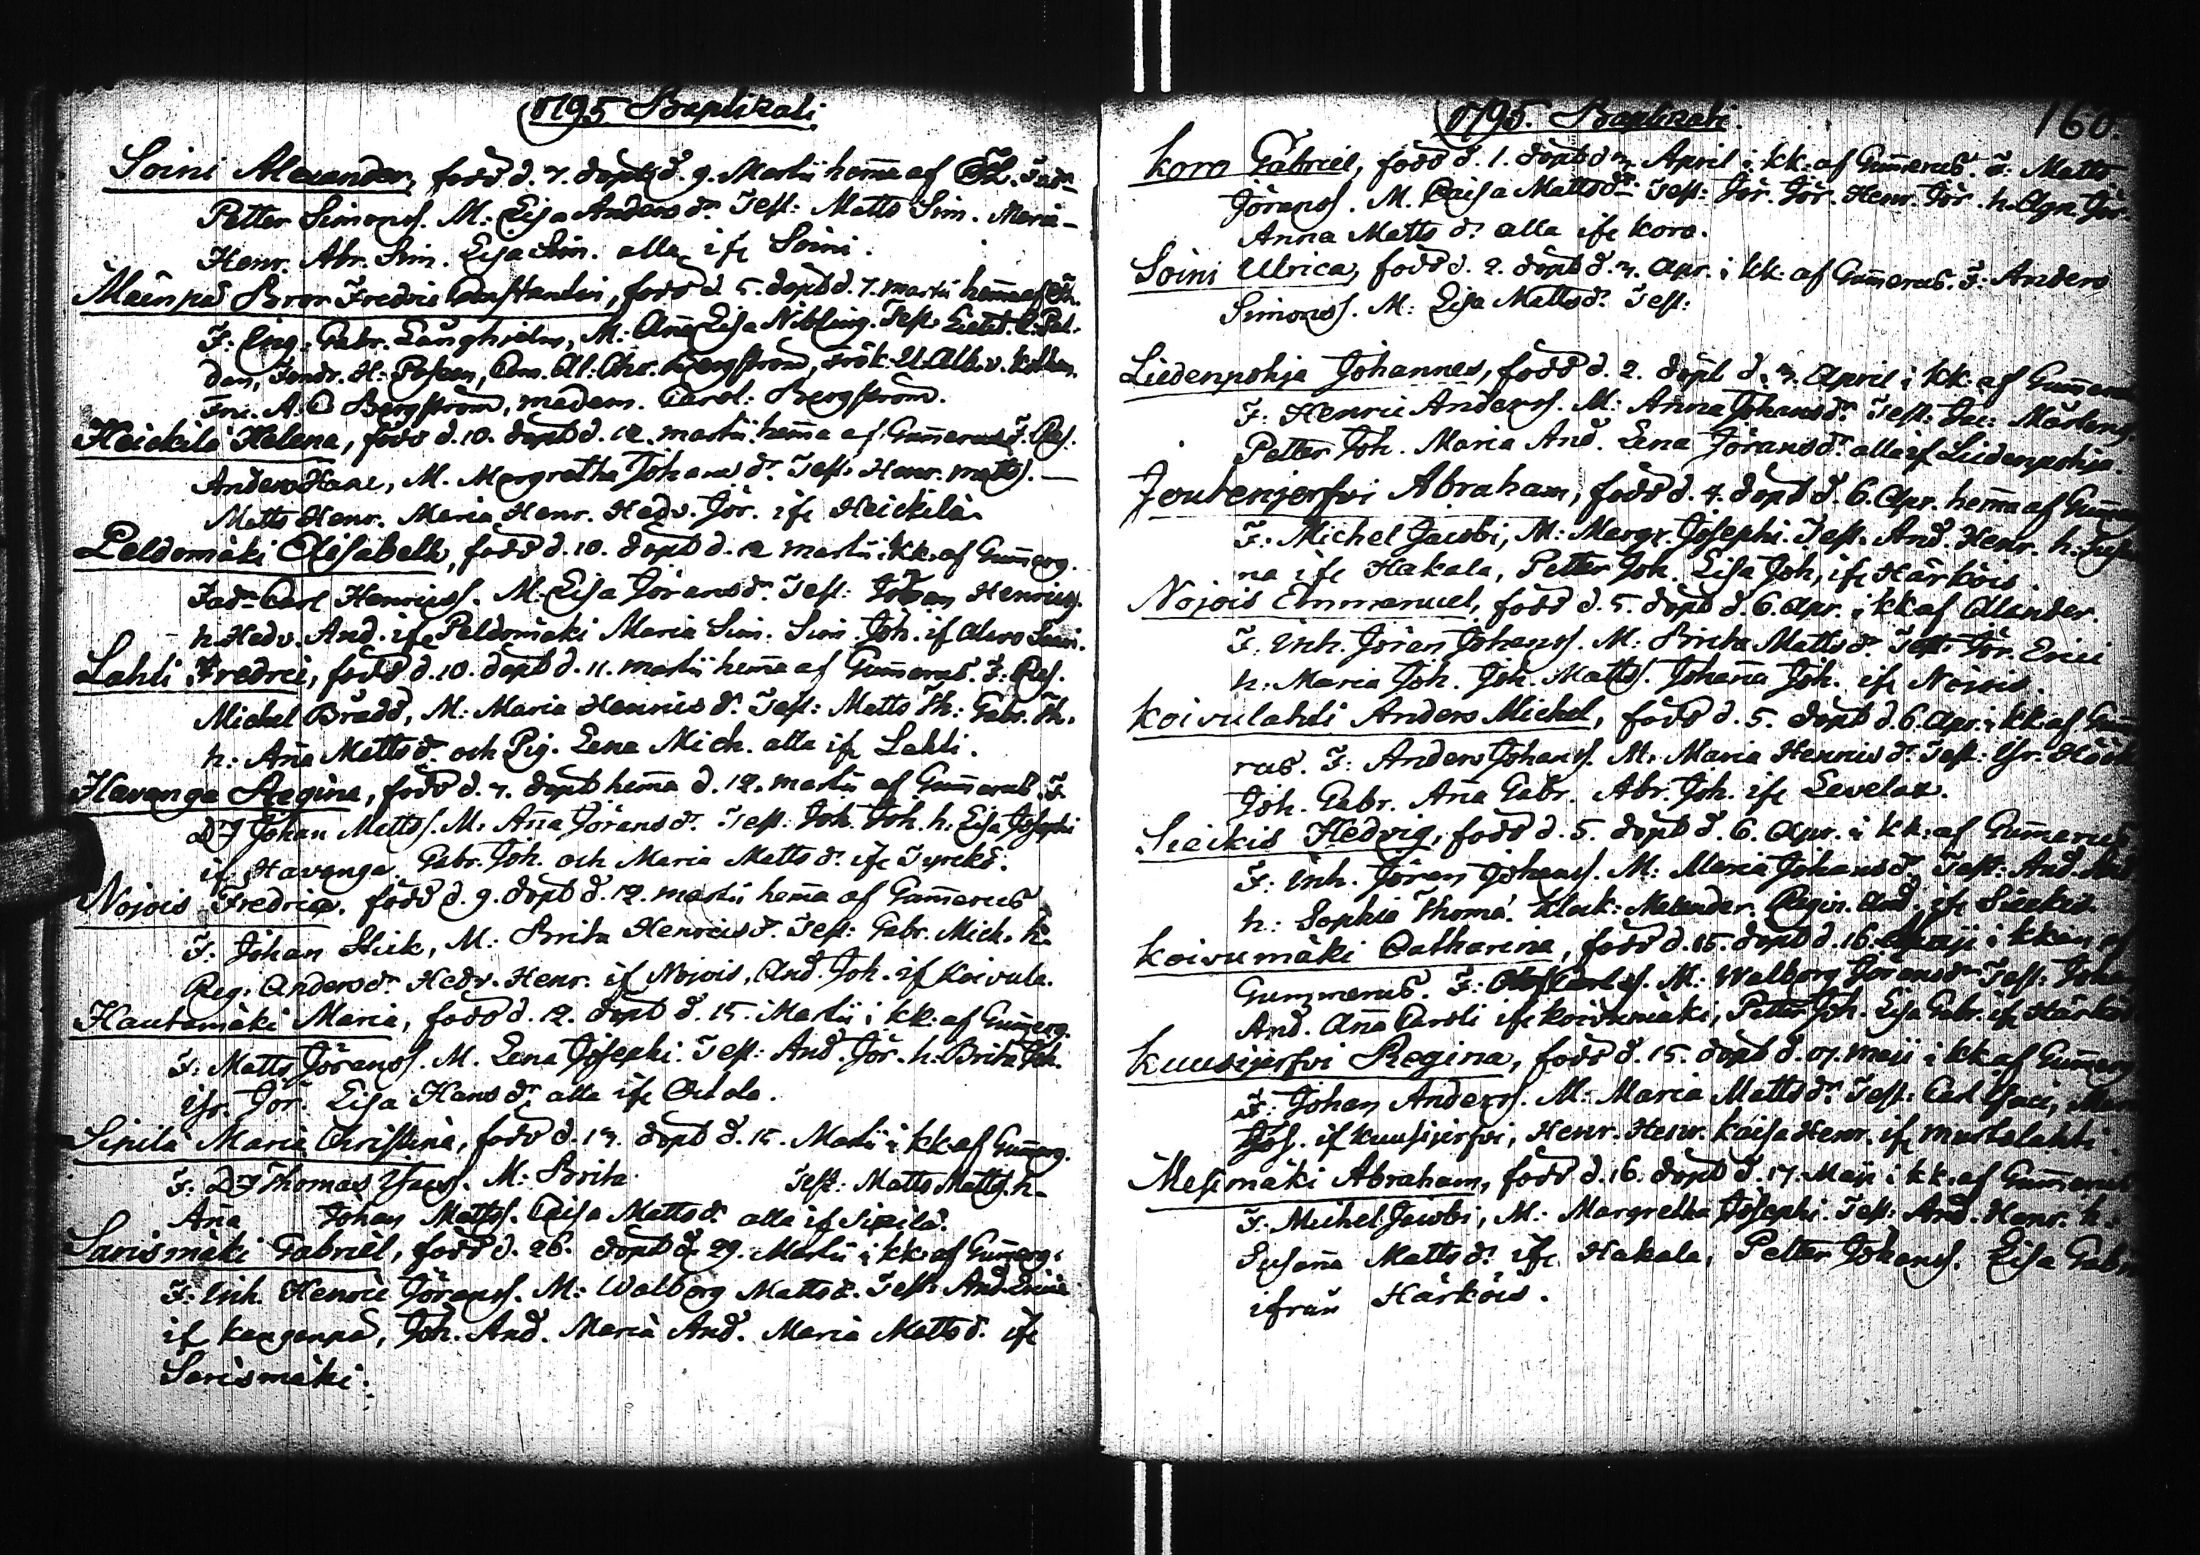 1795 Baptizati
Soini Alexander, född d. 7. döpt d. 9. Martii hem̄a af
Petter Simonss. M: Lisa Anders dr Test: Matts Sim. Maria
Henr. Abr. Sim. Lisa Sim. alla ifr Soini.
Mäenpä Bror Fredric Constantin, född d. 5. döpt d. 7. martii hem̄a af
F: Gabr. Långhielm, M: Ana Lisa Nibling. Test:
H: Bergström,
A: C Bergström, madem. Carol: Bergström.
Heickilä Helena, född d. 10. döpt d. 12. martii hem̄a af Gum̄erus F.
Anders Hane, M. Margretha Johans dr Test: Henr. Matts.
Matts Henr. Maria Henr. Hedv. Jör. ifr Heickilä
Peldomäki Elisabeth, född d. 10. döpt d. 12 martii i kk. af Gum̄erg.
Carl Henricss. M: Lisa Jörans dr Test: Johan Henricss.
h. Hedv. And. ifr Peldomäki Maria Sim. Sim. Joh. if Alavo
Lahti Fredric, född d. 10. döpt d. 11. martii hem̄a af Gum̄erus. F:
Michel Brådd, M: Maria Henrics dr Test: Matts Th: Gabr. Th.
h: An̄a Matts dr och Pig. Lena Mich. alla ifr Lahti.
Havanga Regina, född d. 7. döpt hem̄a d. 12. martii af Gum̄erus. F.
Johan Mattss. M: An̄a Jörans dr Test: Joh. Joh. h: Lisa Josephi
if Havanga. Gabr. Joh. och Maria Matts dr ifr
Nojois Fredrica. född d. 9. döpt d. 12. martii hem̄a af Gum̄erus
F. Johan Stick, M: Brita Henrics dr Test: Gabr. Mich. h:
Reg: Anders dr Hedv. Henr. if Nojois, And. Joh. if Koivula.
Hautamäki Maria, född d. 12. döpt d. 15. Martii i kk: af Gum̄erg.
F: Matts Jöranss. M. Lena Josephi. Test: And. Jör. h: Brita Joh.
Jör. Lisa Hans dr alla ifr
Sipilä Maria Christina, född d. 13. döpt d. 15. Martii i kk af Gum̄erg.
F: Thomas M: Brita Test: Matts Matts. h.
An̄a Johan Mattss. Caisa Matts dr alla if Sipilä.
Sarismäki Gabriel, född d. 26. döpt d. 29. Martii i kk: af Gum̄erg.
F: Inh. Henric Jöranss. M: Walborg Matts dr. Test: And. Erici
if Kangenpä, Joh. And. Maria And. Maria Matts d. ifr
Sarismäki.
1795. Baptizati. 160.
Koro Gabriel, född d. 1. döpt d 3. April i kk: af Gum̄erus. F: Matts
Jöranss. M. Caisa Matts dr Test: Jör. Jör. Henr. Jör. h. Agn. Jör.
Anna Matts dr alla ifr Koro.
Soini Ulrica, född d. 2. döpt d. 3. Apr. i kk: af Gum̄erus. F: Anders
Simonss. M: Lisa Matts dr Test:
Liedenpohja Johannes, född d. 2. döpt d. 3. April i kk: af Gum̄erus
F: Henric Anderss. M: Anna Johans dr Test: Jac: Mårtens.
Petter Joh. Maria And. Lena Jörans dr alla if Liedenpohja.
Joutenjerfvi Abraham, född d. 4. döpt d. 6. Apr. hem̄a af
F: Michel Jacobi, M: Margr. Josephi. Test. And. Henr. h:
na ifr Hakala, Petter Joh. Lisa Joh, ifr Härköis.
Nojois Emmanuel, född d. 5. döpt d. 6. Apr. i kk af Alinder.
F. Inh. Jöran Johanss. M: Brita Matts dr Test: Jör. Erici
h: Maria Joh. Joh. Mattss. Johan̄a Joh. ifr Nojois.
Koivulahti Anders Michel, född d. 5. döpt d. 6. Apr. i kk af Gum̄e
rus. F: Anders Johanss. M: Maria Henrics dr Test:
Joh. Gabr. An̄a Gabr. Abr. Joh. ifr Levelax.
Sieckis Hedvig, född d. 5. döpt d. 6. Apr. i kk: af Gum̄erus
F: Inh. Jöran Johanss. M: Maria Johans dr Test: And.
h: Sophia Thomæ. Klock: Melender. Regin. And. ifr Sieckis.
Koivumäki Catharina, född d. 15. döpt d. 16. Maji i kkan af
Gummerus. F: M: Walborg Jörans dr Test: Johan
And. An̄a Caroli ifr Koivumäki, Petter Joh. Lisa Gabr. ifr Härköis
Kuusijerfvi Regina, född d. 15. döpt d. 17. Maji i kk af Gum̄erg
F: Johan Anderss. M: Maria Matts dr Test: Carl
Jös. if Kuusijerfvi, Henr. Henr. Kaisa Henr. ifr Murtolahti.
Mesimäki Abraham, född d. 16. döpt d. 17. Maji i kk. af Gum̄erus
F. Michel Jacobi, M: Margretha Josephi. Test: And. Henr. h.
Susan̄a Matts dr ifr. Hakala, Petter Johanss. Lisa Gabr
ifrån Härköis.